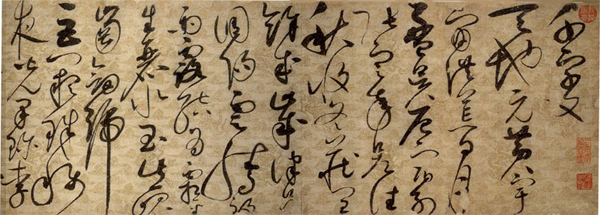 千字文
天地元黃宇
宙洪荒日月
盈昃辰宿列
張寒來暑往
秋收冬藏閏
餘成歲律呂
調陽雲騰致
雨露結為霜
生麗水玉出崑
崗劍號
巨闕珠稱
夜光果珍李